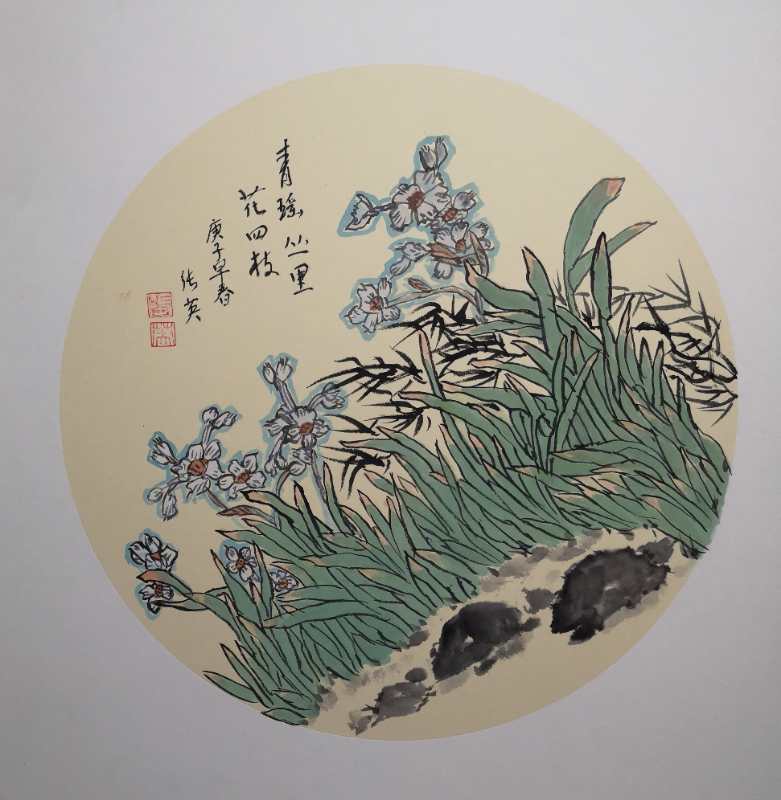 青瑶丛里
花四枝
庚子早春
张英